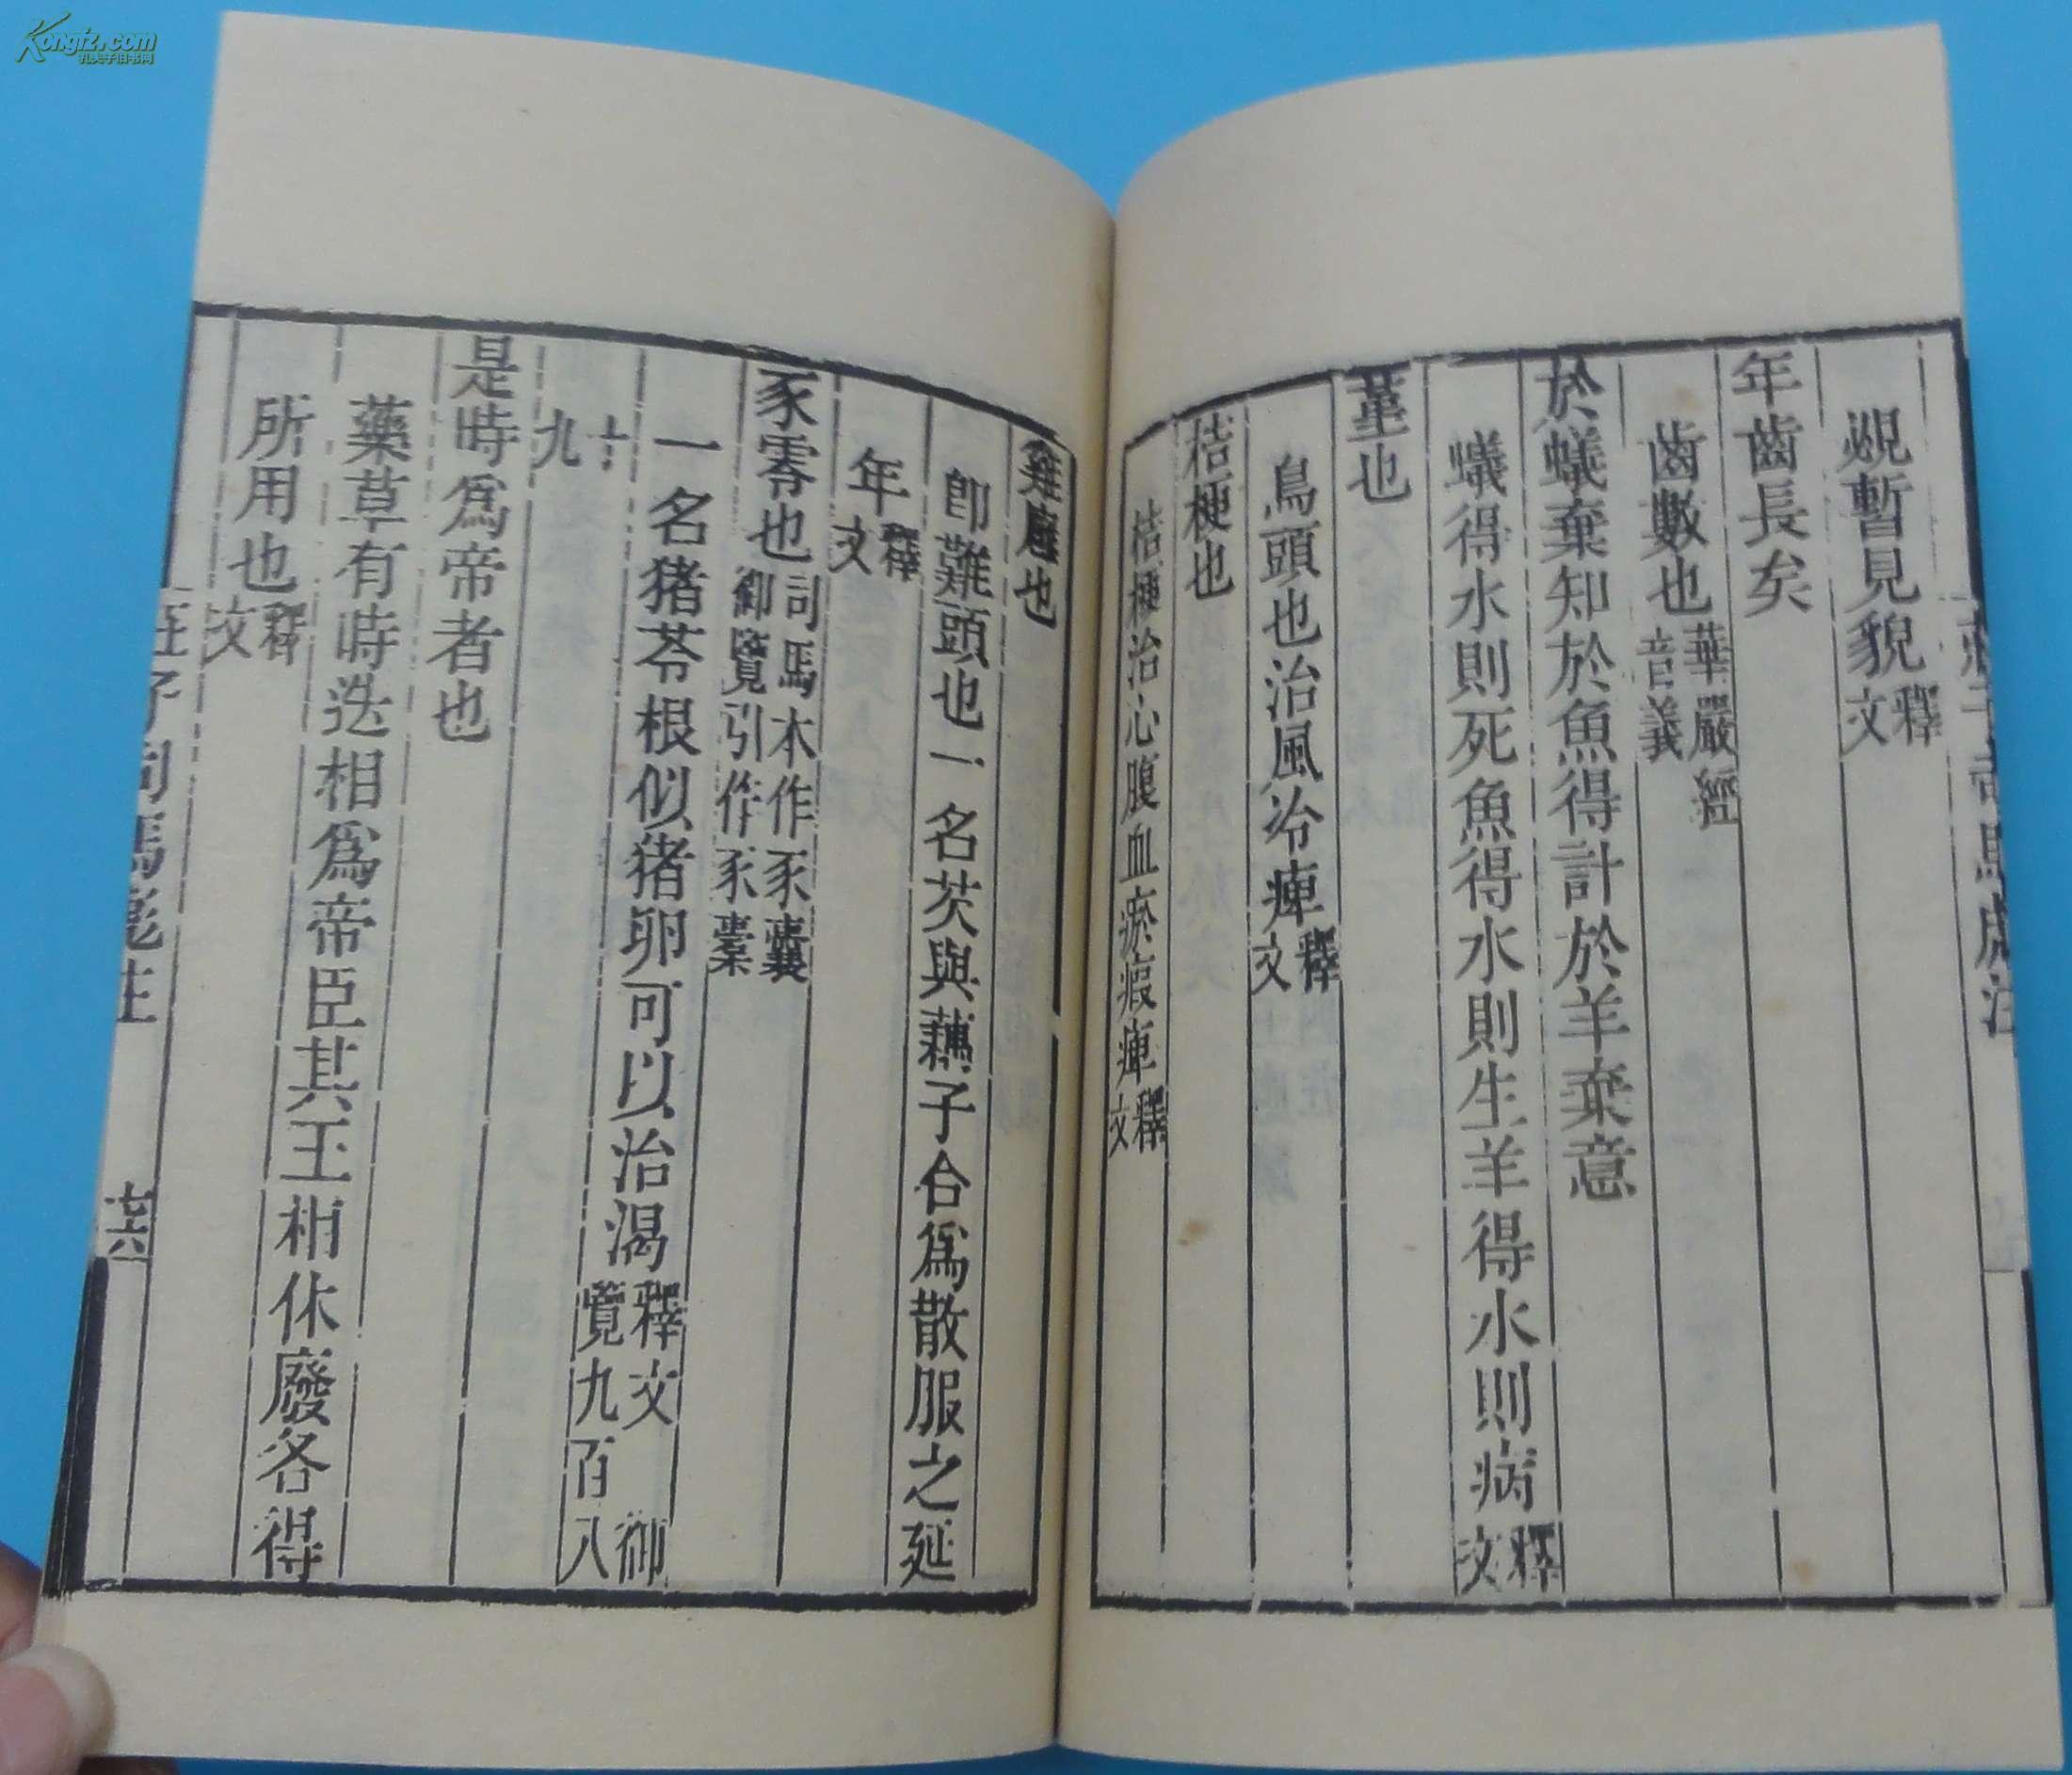 Kongfz.com
孔夫子旧书网
覕暫見貌釋文
年齒長矣
齒數也華嚴經音義
於蟻棄知於魚得計於羊棄意
蟻得水則死魚得水則生羊得水則病釋文
堇也
烏頭也治風冷痺釋文
桔梗也
桔梗治心腹血瘀瘕痺釋文
雞廱也
卽雞頭也一名芡與藕子合爲散服之延
年釋文
豕零也司馬本作豕囊御覽引作豕橐
一名猪苓根似猪卵可以治渴釋文御覽九百八
十九
是時爲帝者也
藥草有時迭相爲帝臣其王相休廢各得
所用也釋文
莊子司馬彪注
七六